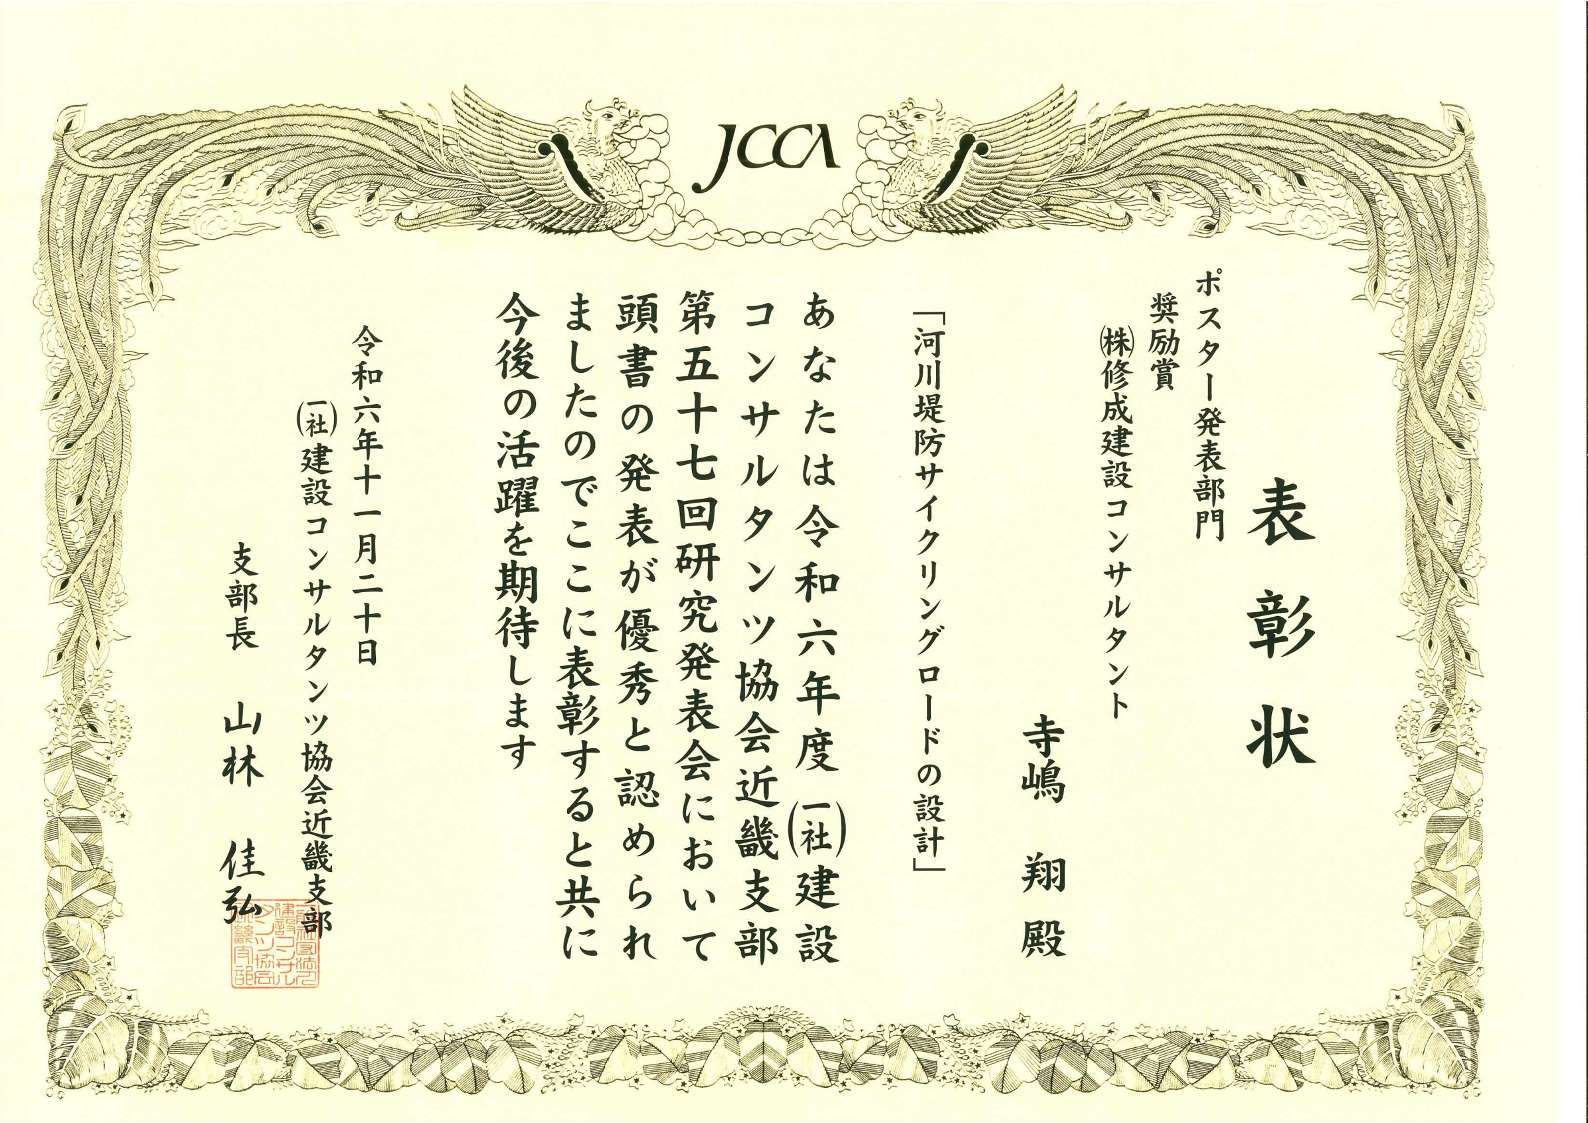 JCCA
表彰状
ポスター発表部門
奨励賞
㈱修成建設コンサルタント
寺嶋 翔 殿
「河川堤防サイクリングロードの設計」
あなたは令和六年度(一社)建設
コンサルタンツ協会近畿支部
第五十七回研究発表会において
頭書の発表が優秀と認められ
ましたのでここに表彰すると共に
今後の活躍を期待します
令和六年十一月二十日
(一社)建設コンサルタンツ協会近畿支部
支部長 山林 佳弘